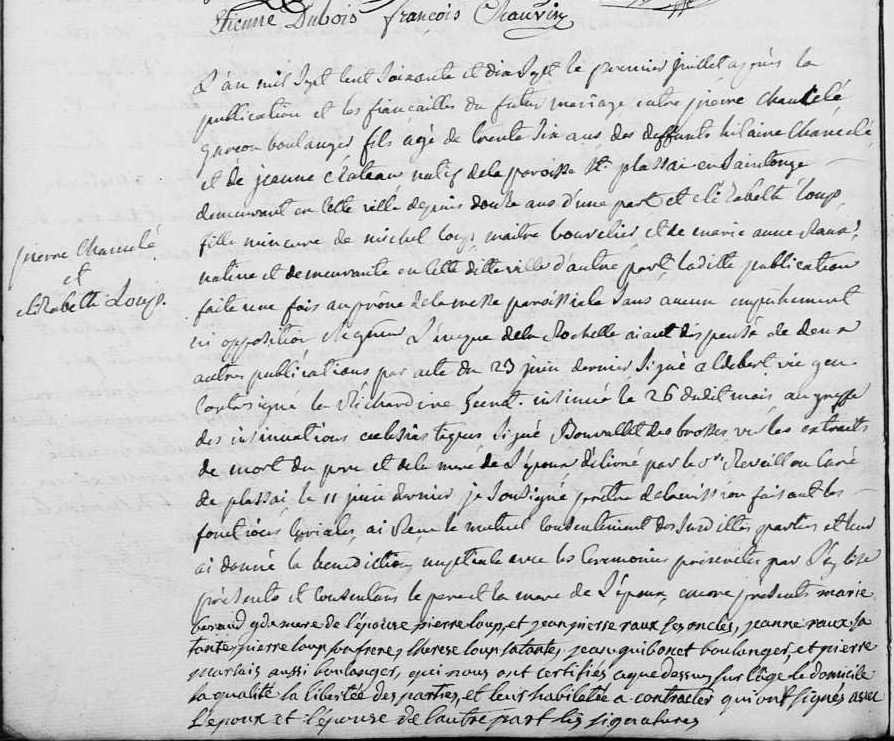 Etienne Dubois françois Chauvin
L'an mil sept cent soixante et dix sept le premier juillet après la
publication et les fiancailles du futur mariage entre pierre Chauclé
garcon boulanger fils agé de trente six ans des deffunts hilaire Chauclé
et de jeanne Chateau natif de la paroisse St. plassai en Saintonge
demeurant en cette ville depuis douse ans d'une part et elizabeth Loup
fille mineure de michel Loup maitre bourelier et de marie anne Raux
native et demeurante en cette ditte ville d'autre part, laditte publication
pierre Chauclé
et
elizabeth Loup.
faite une fois au prône de la messe paroissiale sans aucun empêchement
ni opposition Seigneur L'éveque de la Rochelle aiant dispensé de deux
autres publications par acte du 23 juin dernier Signé aldebert vic gen
Contresigné le Richardine Secret. insinué le 26 dudit mois au greffe
des insinuations ecclesiastiques Signé Bonvallet des brosses vû les extraits
de mort du pere et de la mere de L'époux délivré par le Sr. Reveillou Curé
de plassai le 11 juin dernier je Soussigné prêtre de la mission faisant les
fonctions Curiales, ai Recu le mutuel consentement des Susdittes parties et leur
ai donné la benediction nuptiale avec les Ceremonies prescrites par L'eglise
présents et consentans le pere et la mere de L'épouse, encore presents marie
beraud gde mere de l'épouse pierre loup, et jean pierre raux ses oncles, jeanne raux sa
tante, pierre loup son frere, therese loup sa tante, jean guibonet boulanger, et pierre
marlais aussi boulanger, qui nous ont certifiés ce que dessus sur l'âge le domicile
la qualité la libertée des parties, et leur habiletée a contracter qui ont signés avec
L'époux et l'épouse de l'autre part les signatures